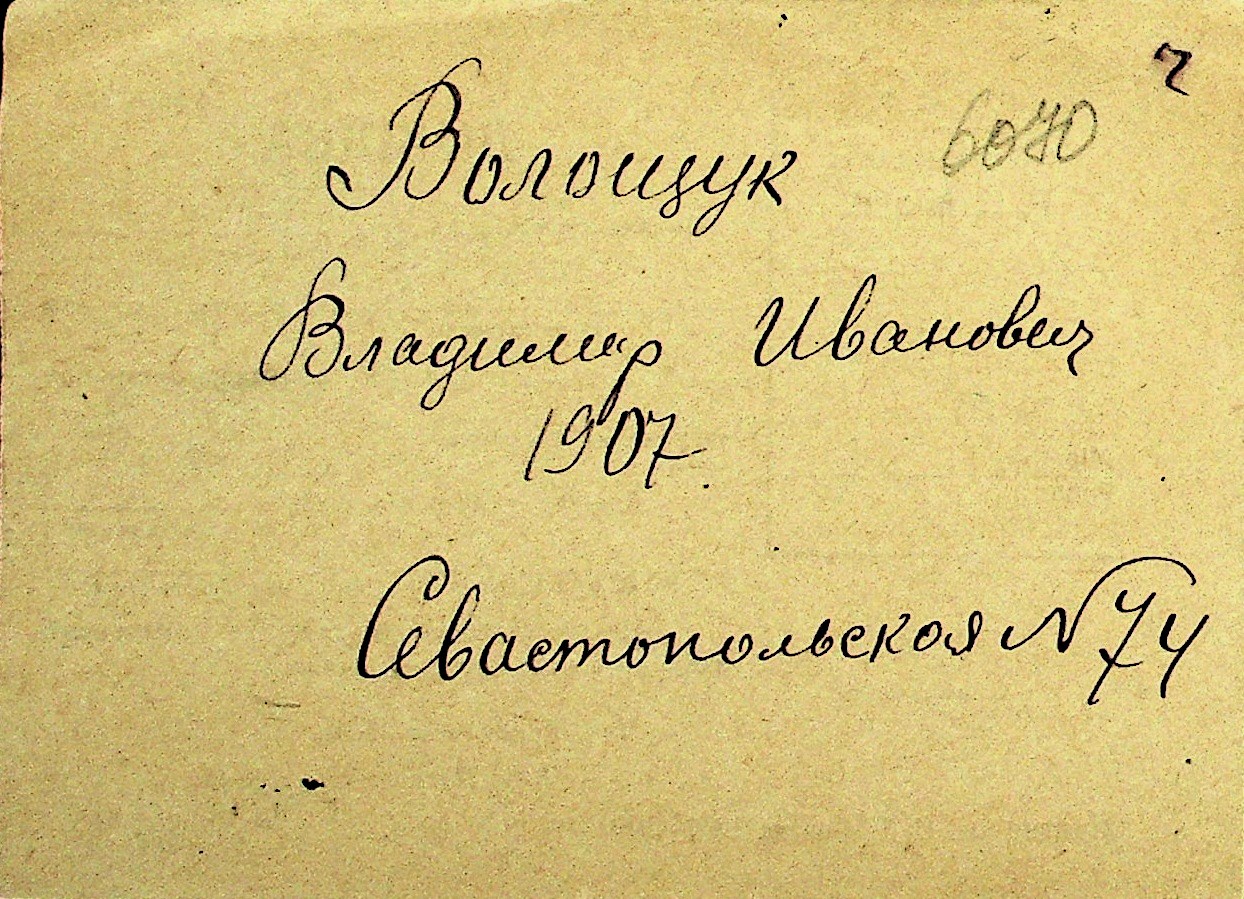 6070
Волощук
Владимир Иванович
1907.
Севастопольская N 74